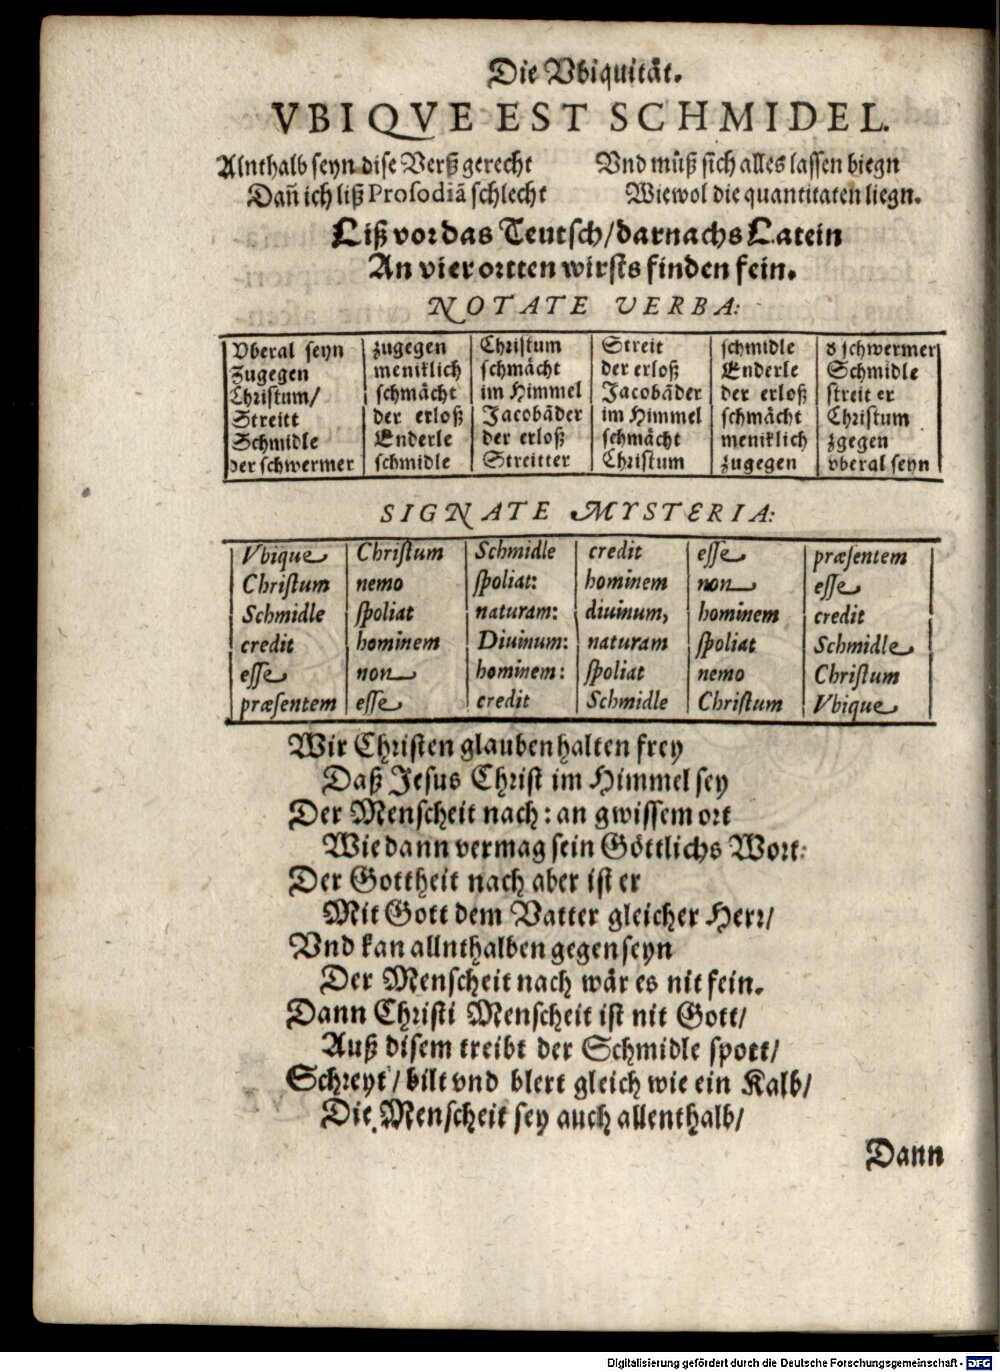 Die Vbiquität.
VBIQVE EST SCHMIDEL.
Alnthalb seyn dise Verß gerecht Vnd müß sich alles lassen biegn
Dañ ich liß Prosodiã schlecht Wiewol die quantitaten liegn.
Liß vor das Teutsch/darnachs Latein
An vier ortten wirsts finden fein.
NOTATE VERBA:
Vberal seyn | zugegen | Christum | Streit | schmidle | d schwermer
Zugegen | meniklich | schmächt | der erloß | Enderle | Schmidle
Christum/ | schmächt | im Himmel | Jacobäder | der erloß | streit er
Streitt | der erloß | Jacobäder | im Himmel | schmächt | Christum
Schmidle | Enderle | der erloß | schmächt | meniklich | zgegen
der schwermer | schmidle | Streitter | Christum | zugegen | vberal seyn
SIGNATE MYSTERIA:
Vbique | Christum | Schmidle | credit | esse | præsentem
Christum | nemo | spoliat: | hominem | non | esse
Schmidle | spoliat | naturam: | diuinum, | hominem | credit
credit | hominem | Diuinum: | naturam | spoliat | Schmidle
esse | non | hominem: | spoliat | nemo | Christum
præsentem | esse | credit | Schmidle | Christum | Vbique
Wir Christen glauben halten frey
Daß Jesus Christ im Himmel sey
Der Menscheit nach: an gwissem ort
Wie dann vermag sein Göttlichs Wort:
Der Gottheit nach aber ist er
Mit Gott dem Vatter gleicher Herr/
Vnd kan allnthalben gegen seyn
Der Menscheit nach wär es nit fein.
Dann Christi Menscheit ist nit Gott/
Auß disem treibt der Schmidle spott/
Schreyt/ bilt vnd blert gleich wie ein Kalb/
Die Menscheit sey auch allenthalb/
Dann
Digitalisierung gefördert durch die Deutsche Forschungsgemeinschaft - DFG